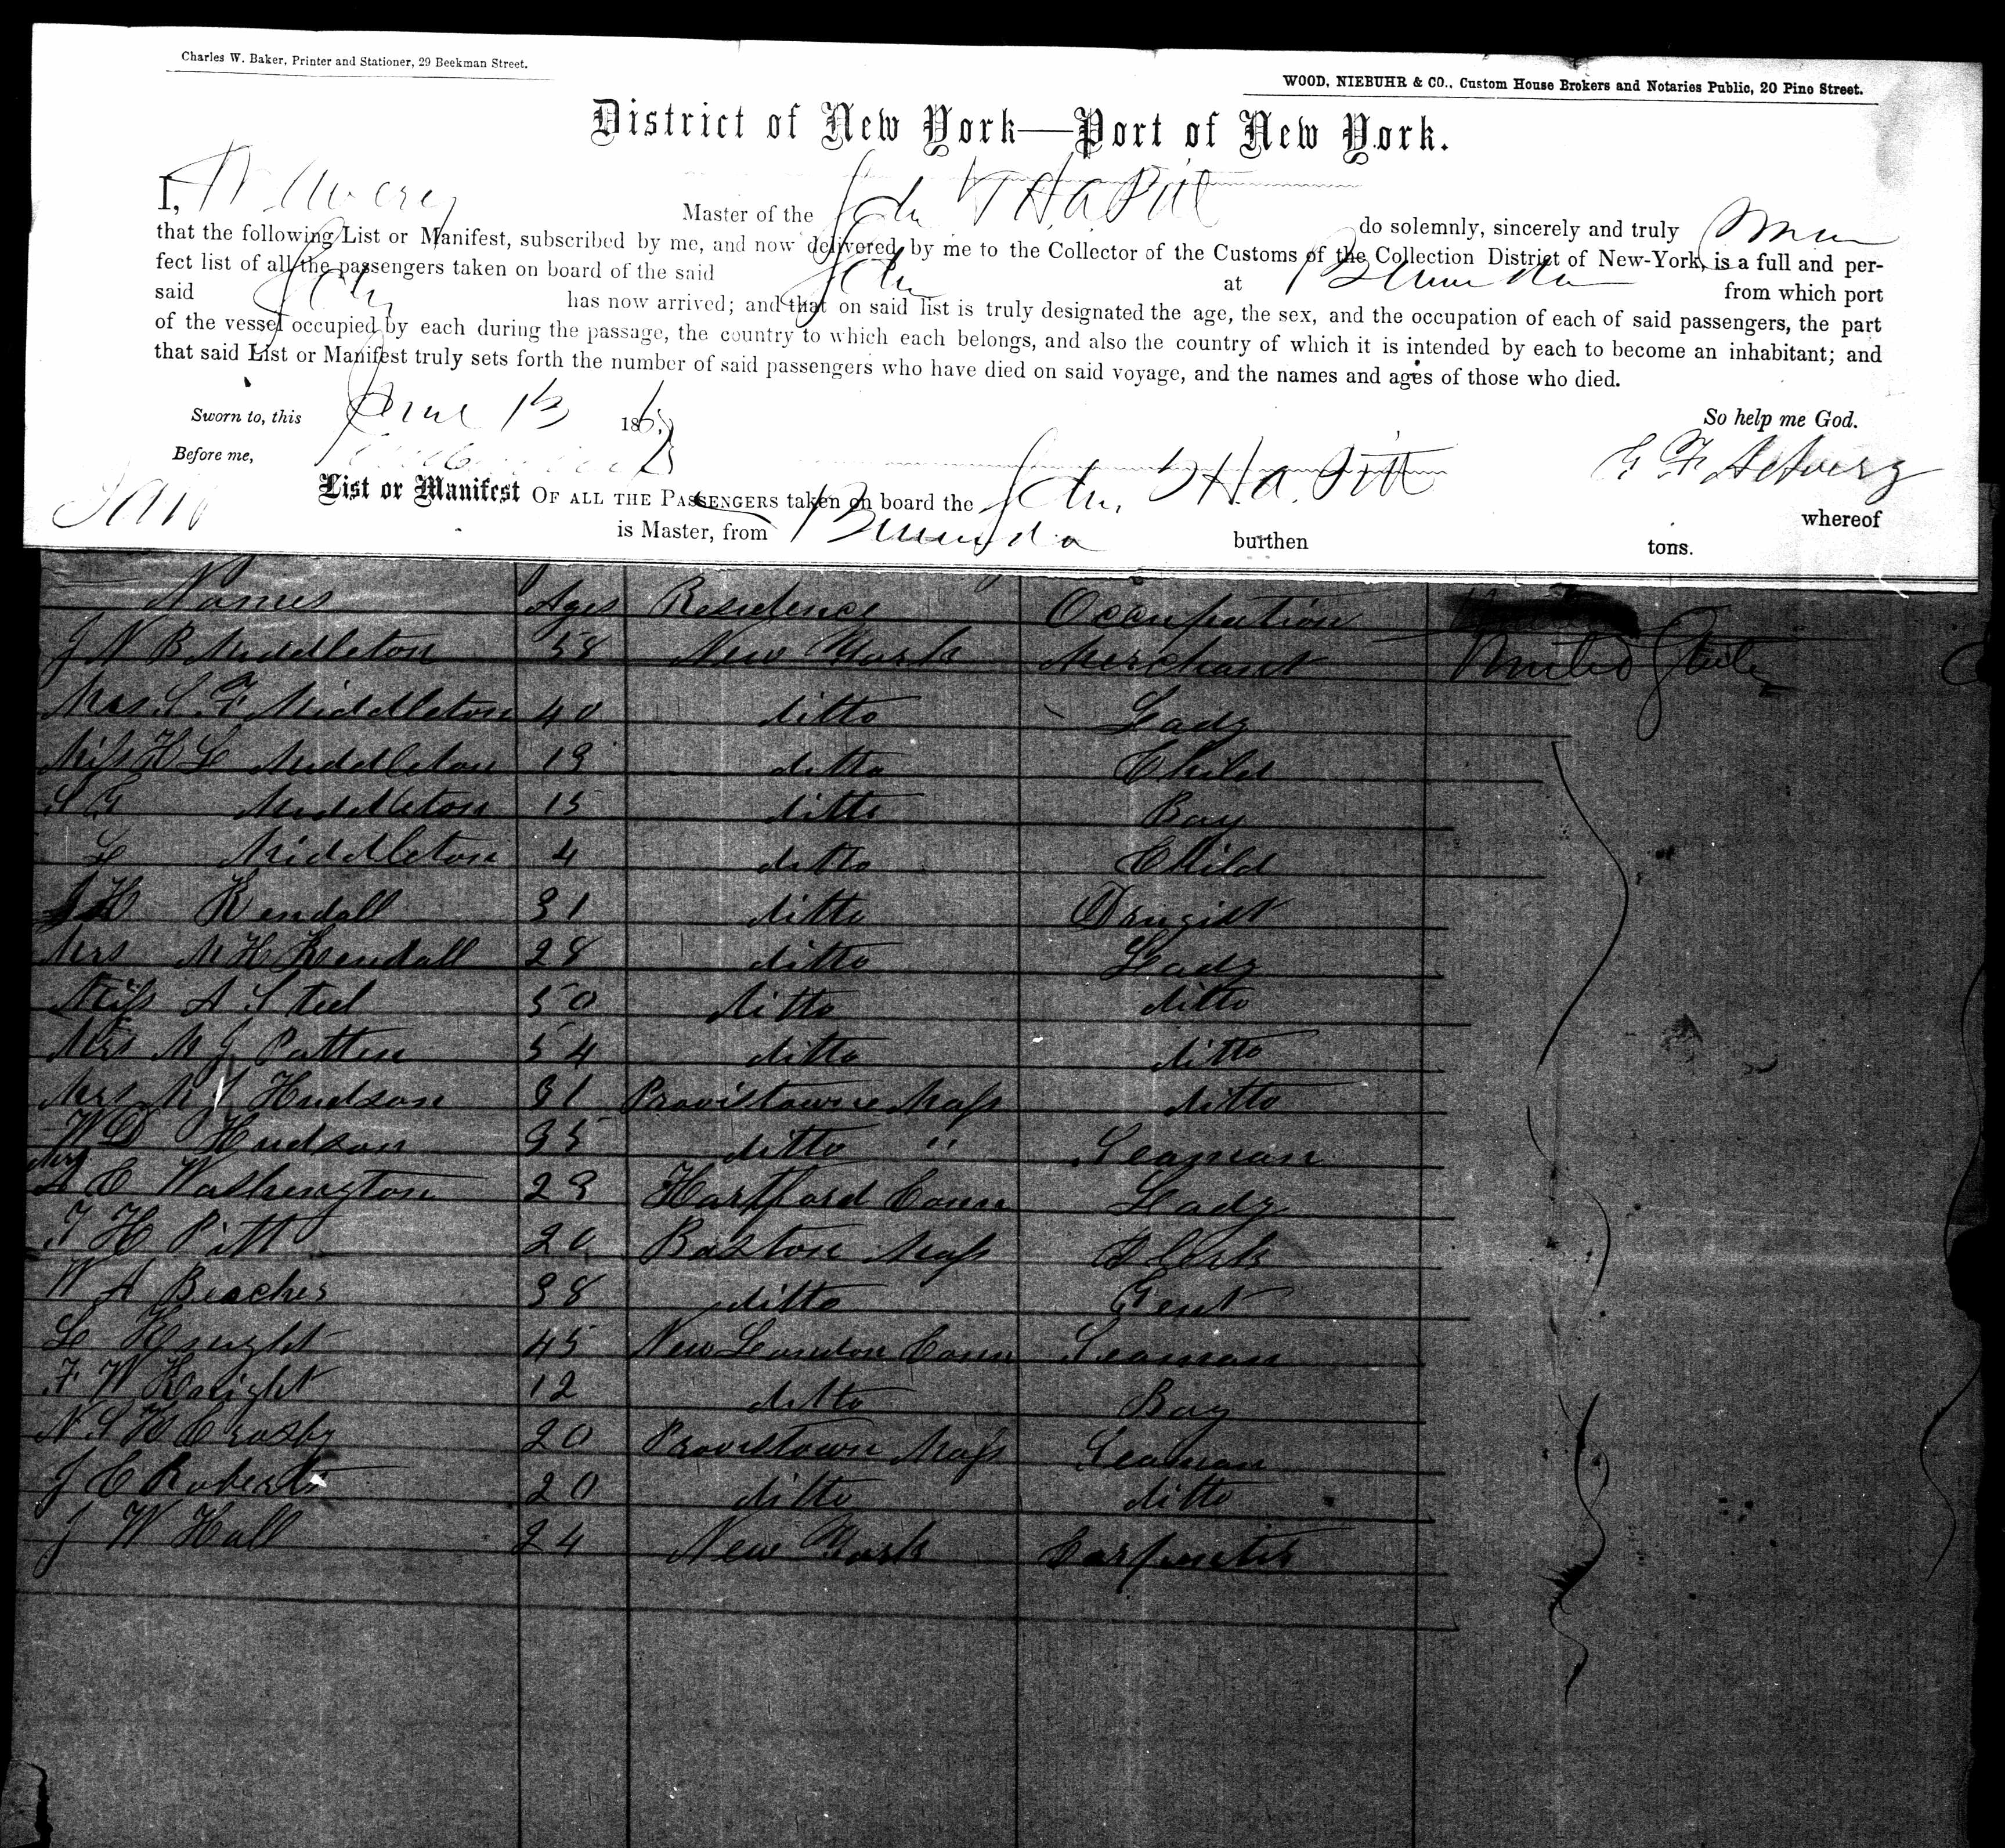 Charles W. Baker, Printer and Stationer, 29 Beekman Street.
WOOD, NIEBUHR & CO., Custom House Brokers and Notaries Public, 20 Pine Street.
District of New York—Port of New York.
I, Master of the Schr T H A Pitt do solemnly, sincerely and truly
that the following List or Manifest, subscribed by me, and now delivered by me to the Collector of the Customs of the Collection District of New-York, is a full and per-
fect list of all the passengers taken on board of the said Schr at Bermuda from which port
said Schr has now arrived; and that on said list is truly designated the age, the sex, and the occupation of each of said passengers, the part
of the vessel occupied by each during the passage, the country to which each belongs, and also the country of which it is intended by each to become an inhabitant; and
that said List or Manifest truly sets forth the number of said passengers who have died on said voyage, and the names and ages of those who died.
Sworn to, this June 13 186 So help me God.
Before me,
List or Manifest OF ALL THE PASSENGERS taken on board the Schr. T H A Pitt whereof
is Master, from Bermuda burthen tons.
Names Ages Residence Occupation
J N B Middleton 58 New York Merchant United States
Mrs S F Middleton 40 ditto Lady
Miss H L Middleton 19 ditto Child
S G Middleton 15 ditto Boy
L Middleton 4 ditto Child
J H Kendall 31 ditto Drugist
Mrs M H Kendall 28 ditto Lady
Miss A Steel 50 ditto ditto
Mrs M J Patten 54 ditto ditto
Mrs M J Hudson 31 Provistowne Mass ditto
W D Hudson 35 ditto " Seaman
Mrs A C Washington 29 Hartford Conn Lady
T H Pitt 20 Boston Mass Clerk
W A Beacher 38 ditto Gent
L Knight 45 New London Conn Seaman
F W Knight 12 ditto Boy
N S H Crosby 20 Provistown Mass Seaman
J C Roberts 20 ditto ditto
J W Hall 24 New York Carpenter